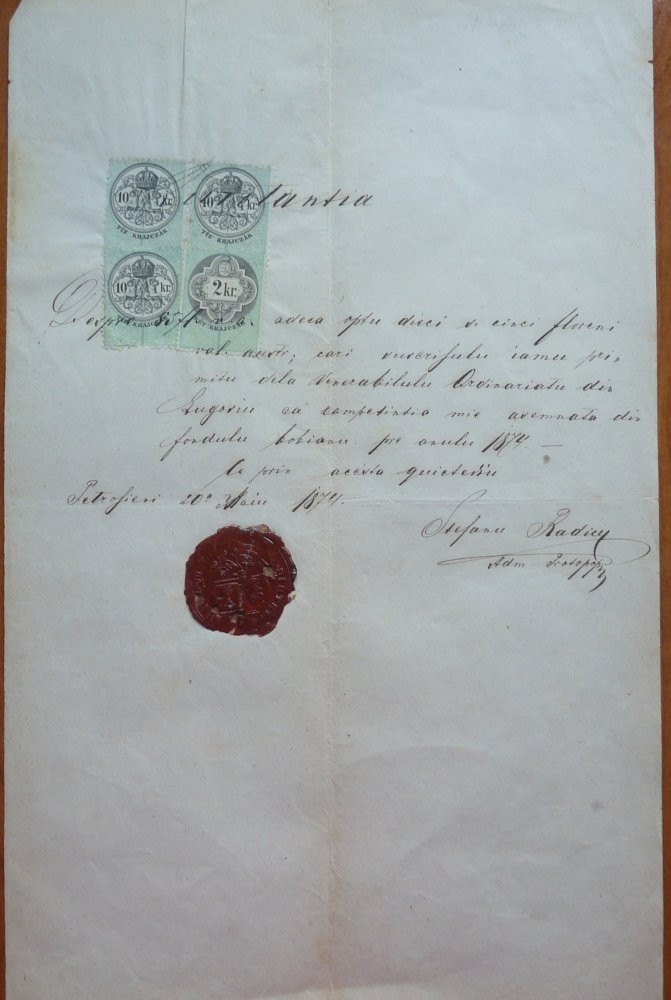 10 kr
TIZ KRAJCZÁR
10 kr
TIZ KRAJCZÁR
10 kr
KRAJCZÁR
2 kr.
KRAJCZÁR
Despre adeca optu dieci si cinci floreni
val. austr; cari suscrisulu iamu pri-
mitu dela Venerabilulu Ordinariatu din
Lugosiu câ competintia mie asemnata din
fondulu bobianu pre anulu 1874. —
Ce prin acesta quietediu
Petrosieni 20 Maiu 1874.
Stefanu Radicu
Adm Protopop